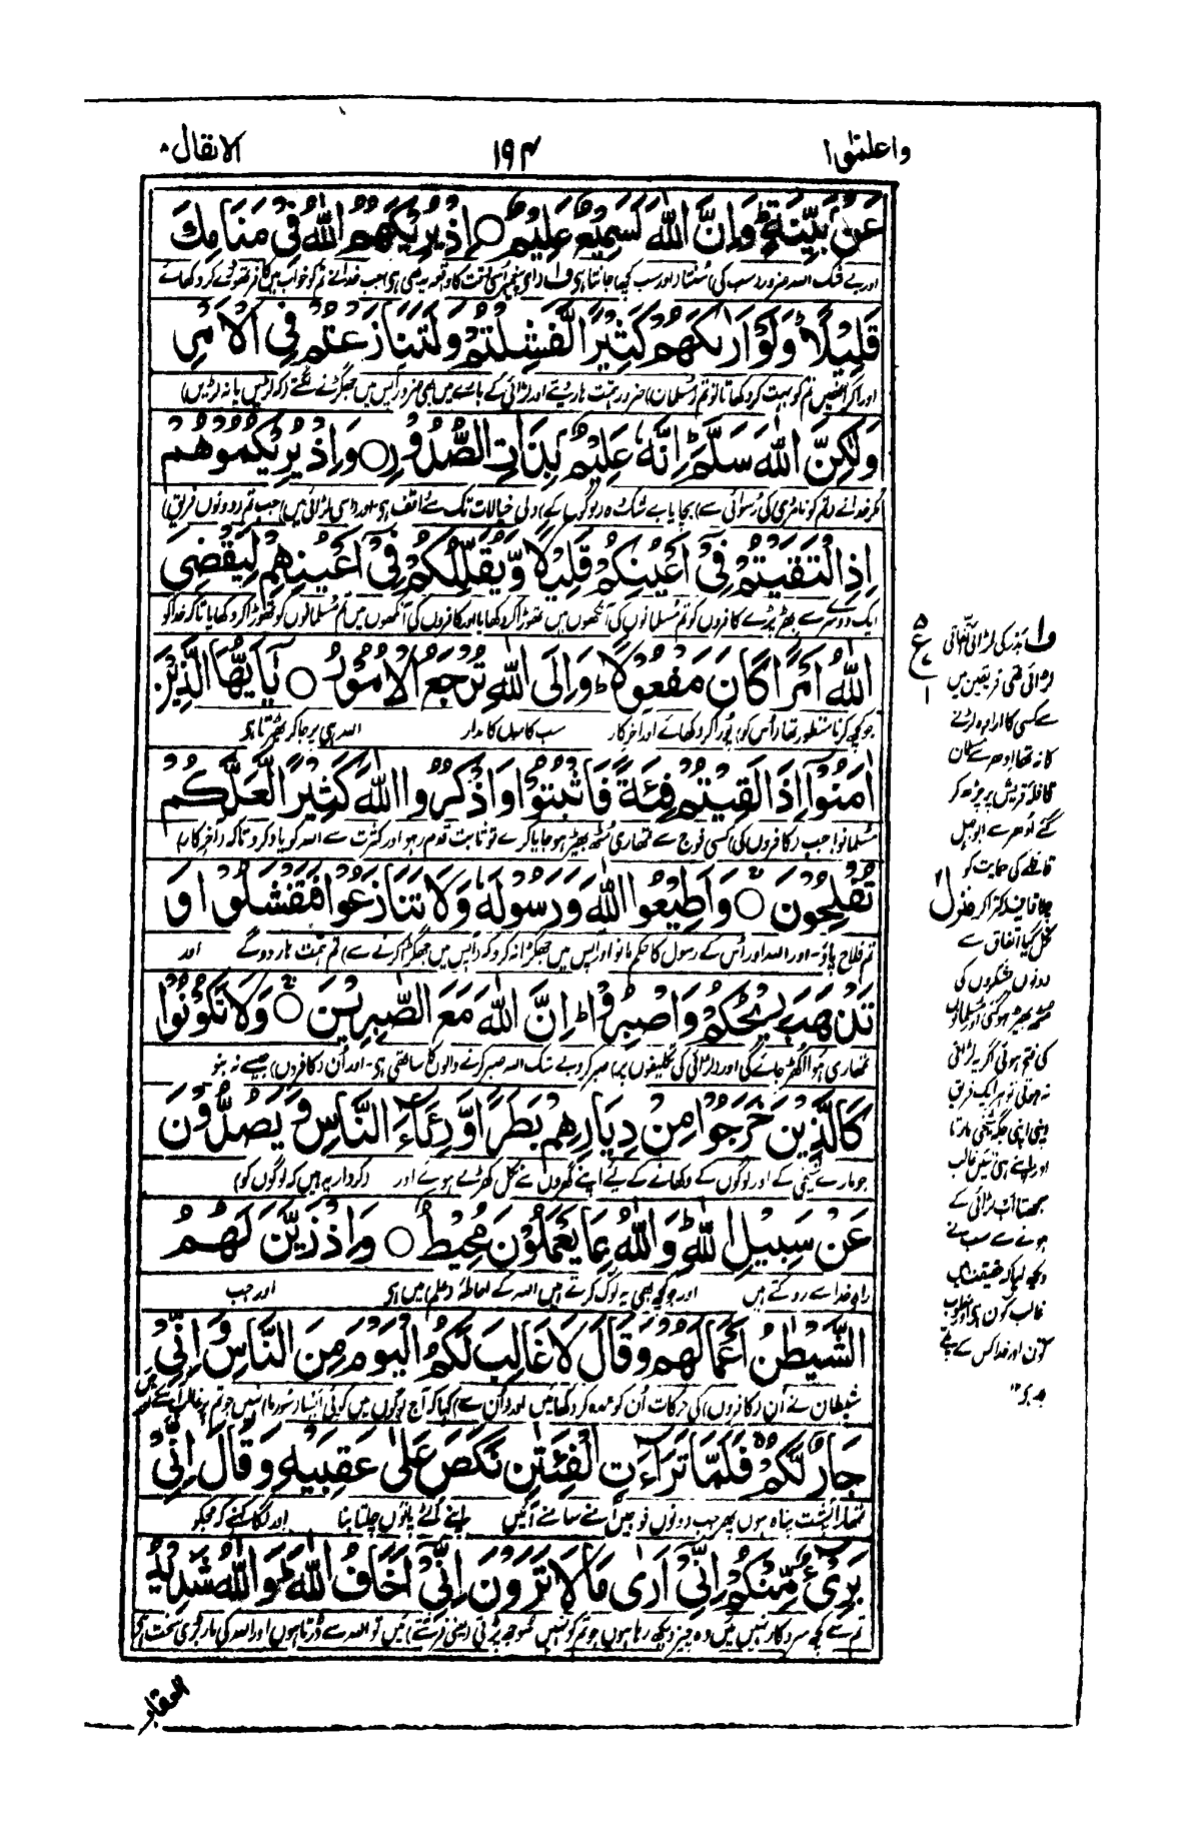 واعلموا ۱۰
۱۹۴
الانفال ۸
عَنْ بَيِّنَةٍ ؕ وَاِنَّ اللّٰهَ لَسَمِيْعٌ عَلِيْمٌ ○ اِذْ يُرِيْكَهُمُ اللّٰهُ فِيْ مَنَامِكَ
اور بے شک اللہ ضرور سب کی سُنتا اور سب کچھ جانتا ہی
قَلِيْلًا ؕ وَلَوْ اَرٰىكَهُمْ كَثِيْرًا لَّفَشِلْتُمْ وَلَتَنَازَعْتُمْ فِي الْاَمْرِ
اور اگر انھیں تم کو بہت کر دکھاتا تو تم (مسلمان) ضرور ہمت ہار دیتے اور لڑائی کے بارے میں بھی ضرور آپس میں جھگڑنے لگتے (کہ لڑیں یا نہ لڑیں)
وَلٰكِنَّ اللّٰهَ سَلَّمَ ؕ اِنَّهٗ عَلِيْمٌۢ بِذَاتِ الصُّدُوْرِ ○ وَاِذْ يُرِيْكُمُوْهُمْ
مگر خدا نے (تم کو نامردی کی رُسوائی سے) بچایا بے شک وہ (لوگوں کے) دلی خیالات تک سے واقف ہی اور (اسی لڑائی میں) جب تم (دونوں فریق)
اِذِ الْتَقَيْتُمْ فِيْٓ اَعْيُنِكُمْ قَلِيْلًا وَّيُقَلِّلُكُمْ فِيْٓ اَعْيُنِهِمْ لِيَقْضِيَ
ایک دوسرے سے بھڑ پڑے کافروں کو تم مسلمانوں کی آنکھوں میں تھوڑا کر دکھایا اور کافروں کی آنکھوں میں تم مسلمانوں کو تھوڑا کر دکھایا تاکہ خدا کو
اللّٰهُ اَمْرًا كَانَ مَفْعُوْلًا ؕ وَاِلَى اللّٰهِ تُرْجَعُ الْاُمُوْرُ ○ يٰٓاَيُّهَا الَّذِيْنَ
جو کچھ کرنا منظور تھا (اُس کو) پورا کر دکھائے اور آخر کار سب کاموں کا مدار اللہ ہی پر جا کر ٹھیرتا ہی
اٰمَنُوْٓا اِذَا لَقِيْتُمْ فِئَةً فَاثْبُتُوْا وَاذْكُرُوا اللّٰهَ كَثِيْرًا لَّعَلَّكُمْ
مسلمانو! جب (کافروں کی) کسی فوج سے تمھاری مُٹھ بھیڑ ہو جایا کرے تو ثابت قدم رہو اور کثرت سے اللہ کو یاد کرو تاکہ (آخر کار)
تُفْلِحُوْنَ ○ وَاَطِيْعُوا اللّٰهَ وَرَسُوْلَهٗ وَلَا تَنَازَعُوْا فَتَفْشَلُوْا وَ
تم فلاح پاؤ۔ اور اللہ اور اُس کے رسول کا حکم مانو اور آپس میں جھگڑا نہ کرو کہ (آپس میں جھگڑا کرنے سے) تم ہمت ہار دوگے اور
تَذْهَبَ رِيْحُكُمْ وَاصْبِرُوْا ؕ اِنَّ اللّٰهَ مَعَ الصّٰبِرِيْنَ ○ وَلَا تَكُوْنُوْا
تمھاری ہوا اُکھڑ جائے گی اور (لڑائی کی تکلیفوں پر) صبر کرو بے شک اللہ صبر کرنے والوں کا ساتھی ہی۔ اور اُن (کافروں) جیسے نہ بنو
كَالَّذِيْنَ خَرَجُوْا مِنْ دِيَارِهِمْ بَطَرًا وَّرِئَآءَ النَّاسِ وَيَصُدُّوْنَ
جو مارے شیخی کے اور لوگوں کے دکھانے کے لیے اپنے گھروں سے نکل کھڑے ہوئے اور (کردار یہ ہیں کہ لوگوں کو)
عَنْ سَبِيْلِ اللّٰهِ ؕ وَاللّٰهُ بِمَا يَعْمَلُوْنَ مُحِيْطٌ ○ وَاِذْ زَيَّنَ لَهُمُ
راہِ خدا سے روکتے ہیں اور جو کچھ بھی یہ لوگ کرتے ہیں اللہ کے احاطۂ (علم) میں ہی اور جب
الشَّيْطٰنُ اَعْمَالَهُمْ وَقَالَ لَا غَالِبَ لَكُمُ الْيَوْمَ مِنَ النَّاسِ وَاِنِّيْ
شیطان نے اُن (کافروں) کی حرکات اُن کو عمدہ کر دکھائیں اور (اُن سے) کہا کہ آج لوگوں میں کوئی
جَارٌ لَّكُمْ ۚ فَلَمَّا تَرَآءَتِ الْفِئَتٰنِ نَكَصَ عَلٰى عَقِبَيْهِ وَقَالَ اِنِّيْ
تمھارا پُشت پناہ ہوں پھر جب دونوں فوجیں آمنے سامنے آئیں اپنے اُلٹے پاؤں چلتا بنا اور لگا کہنے کہ مجھ کو
بَرِيْٓءٌ مِّنْكُمْ اِنِّيْٓ اَرٰى مَا لَا تَرَوْنَ اِنِّيْٓ اَخَافُ اللّٰهَ ؕ وَاللّٰهُ شَدِيْدُ
تم سے کچھ سروکار نہیں میں وہ چیز دیکھ رہا ہوں جو تم کو نہیں سوجھ پڑتی (یعنی فرشتے) میں تو اللہ سے ڈرتا ہوں اور اللہ کی مار بڑی سخت ہی
العقاب
ع
ف۱ بدر کی لڑائی اتفاقی
لڑائی تھی فریقین میں
سے کسی کا ارادہ لڑنے
کا نہ تھا ادھر مسلمان
قافلۂ قریش پر چڑھ کر
گئے اُدھر سے ابوجہل
قافلے کی حمایت کو
چلا قافلہ کترا کر
نکل گیا اتفاق سے
دونوں لشکروں کی
مٹھ بھیڑ ہوگئی اور مسلمانوں
کی فتح ہوئی اگر یہ لڑائی
نہ ہوتی تو ہر ایک فریق
اپنی اپنی جگہ شیخی مارتا
اور اپنے ہی تئیں غالب
سمجھتا اب لڑائی کے
ہونے سے سب نے
دیکھ لیا کہ حقیقت میں
غالب کون ہی اور مغلوب
کون اور خدا کس کے پلے
پر ہی ۱۲
منزل ۲